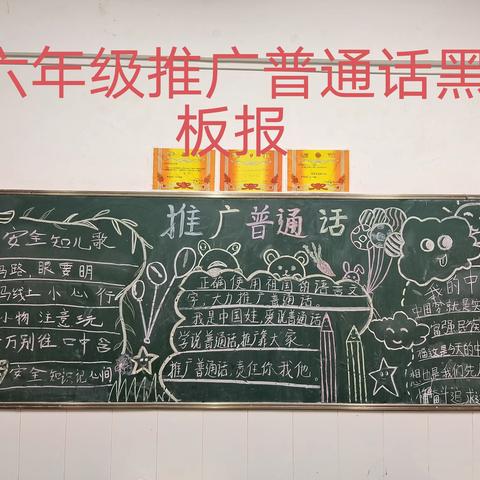 六年级推广普通话黑
板报
推广普通话
安全知儿歌
马路,眼要明
马线上小心行
小物注意玩
万别往口中含
安全知识记心间
正确使用祖国的语言文
字,大力推广普通话。
我是中国娃,爱说普通话
学说普通话,推荐大家
推广普通话,责任你我他。
我的中
中国梦就是
富强民族
福这是今天的中
想也是我们先
追求